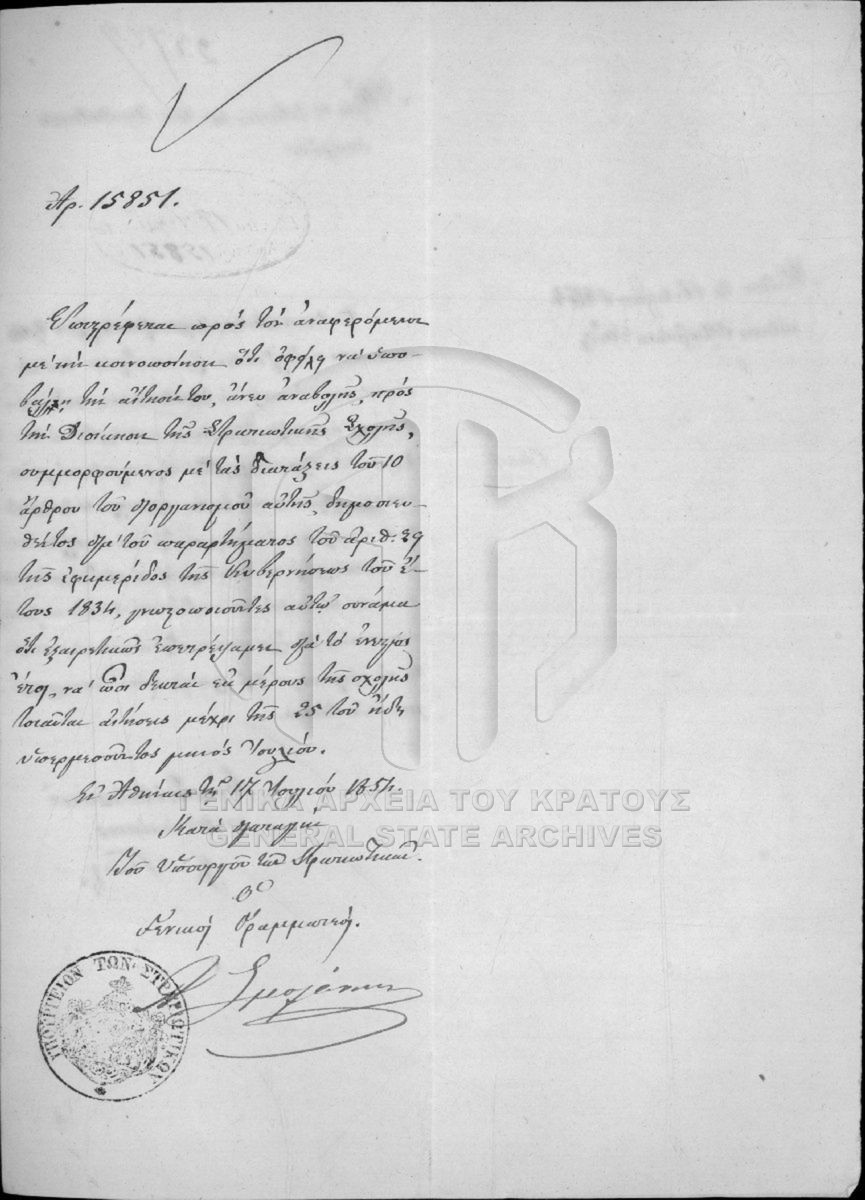 Ἀρ. 15851.
Ἐπιστρέφεται πρὸς τὸν ἀναφερόμενον
μὲ τὴν κοινοποίησιν ὅτι ὀφείλει νὰ ὑπο-
βάλῃ τὴν αἴτησίν του, ἄνευ ἀναβολῆς, πρὸς
τὴν Διοίκησιν τῆς Στρατιωτικῆς Σχολῆς,
συμμορφούμενος μὲ τὰς διατάξεις τοῦ 10
ἄρθρου τοῦ διοργανισμοῦ αὐτῆς, δημοσιευ-
θέντος διὰ τοῦ παραρτήματος τοῦ ἀριθ. 29
τῆς ἐφημερίδος τῆς Κυβερνήσεως τοῦ ἔ-
τους 1834, γνωστοποιοῦντες αὐτῷ συνάμα
ὅτι ἐξαιρετικῶς ἐπετρέψαμεν διὰ τὸ ἐνεστὸς
ἔτος, νὰ ὦσι δεκταὶ ἐκ μέρους τῆς σχολῆς
τοιαῦται αἰτήσεις μέχρι τῆς 25 τοῦ ἤδη
ὑπερμεσοῦντος μηνὸς Ἰουλίου.
Ἐν Ἀθήναις τῇ 17 Ἰουλίου 1854.
Κατὰ διαταγὴν
Τοῦ Ὑπουργοῦ τῶν Στρατιωτικῶν.
Ὁ
Γενικὸς Γραμματεύς.
Σμολένσκης
ΥΠΟΥΡΓΕΙΟΝ ΤΩΝ ΣΤΡΑΤΙΩΤΙΚΩΝ
ΓΕΝΙΚΑ ΑΡΧΕΙΑ ΤΟΥ ΚΡΑΤΟΥΣ
GENERAL STATE ARCHIVES